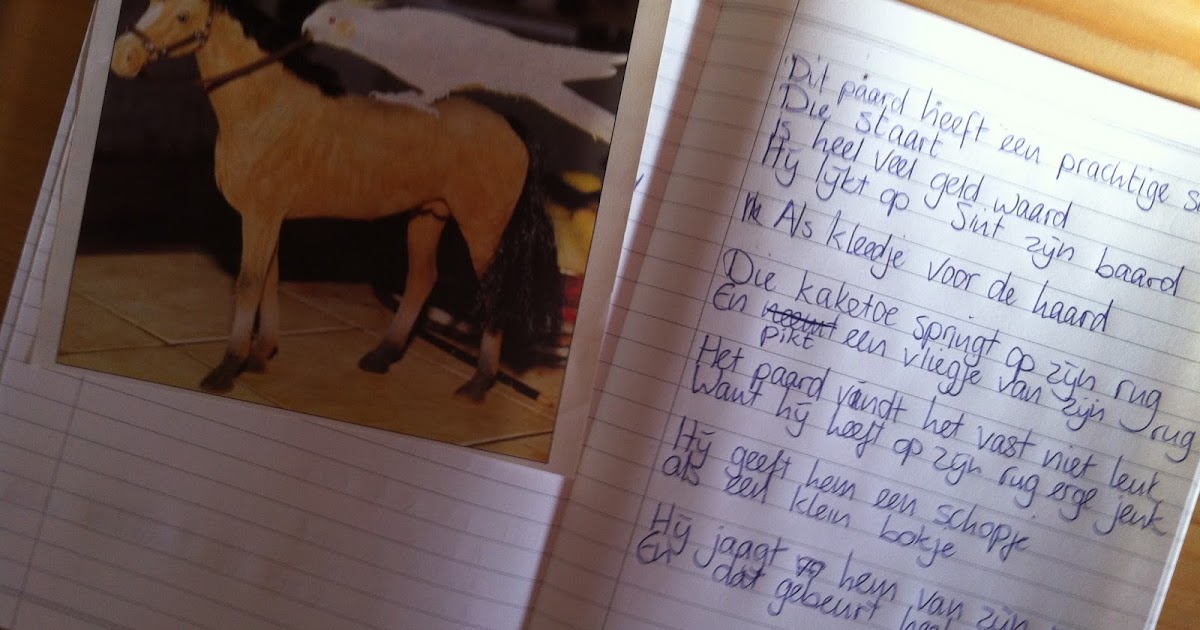 Dit paard heeft een prachtige
Die staart
Is heel veel geld waard
Hij lijkt op Sint zijn baard
Als kleedje voor de haard
Die kaketoe springt op zijn rug
En pikt een vliegje van zijn rug
Het paard vindt het vast niet leuk
Want hij heeft op zijn rug erge jeuk
Hij geeft hem een schopje
als een klein bokje
Hij jaagt hem van zijn
En dat gebeurt